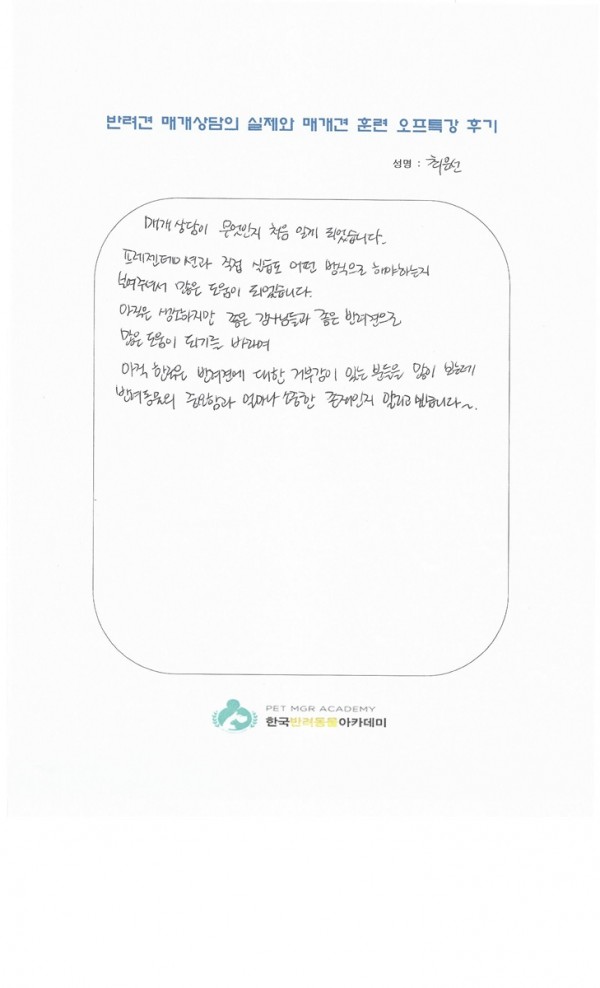 반려견 매개상담의 실제와 매개견 훈련 오프특강 후기
성명 : 최윤선
매개 상담이 무엇인지 처음 알게 되었습니다.
프레젠테이션과 직접 실습도 어떤 방식으로 해야하는지
보여주셔서 많은 도움이 되었습니다.
아직은 생소하지만 좋은 강사님들과 좋은 반려견으로
많은 도움이 되기를 바라며
아직 한국은 반려견에 대한 거부감이 있는 분들을 많이 보는데
반려동물의 중요함과 얼마나 소중한 존재인지 알리고 싶습니다~.
PET MGR ACADEMY
한국반려동물아카데미